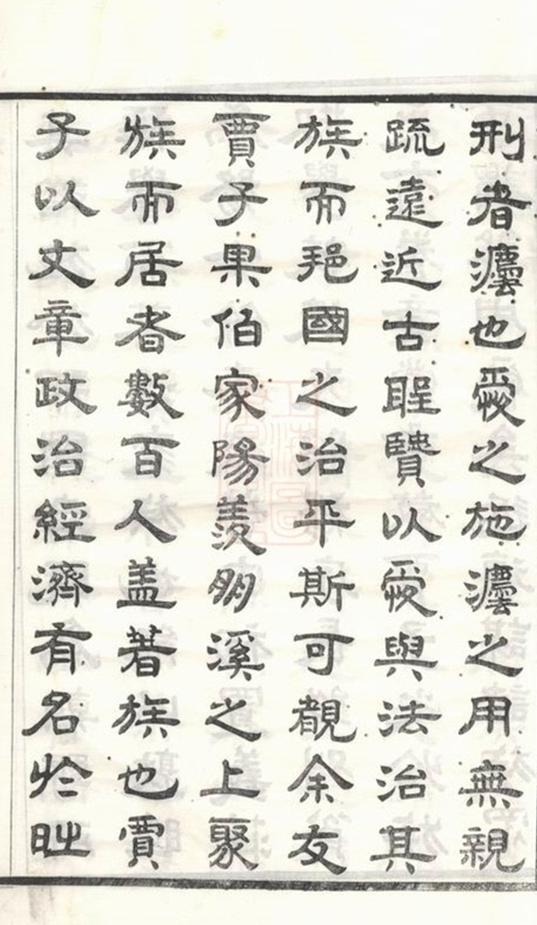 刑者灋也愛之施灋之用無親
疏遠近古聖賢以愛與法治其
族而國之治平斯可覩余友
賈子果伯家陽羨溪之上聚
族而居者數百人盖著族也賈
子以文章政治經濟有名於時